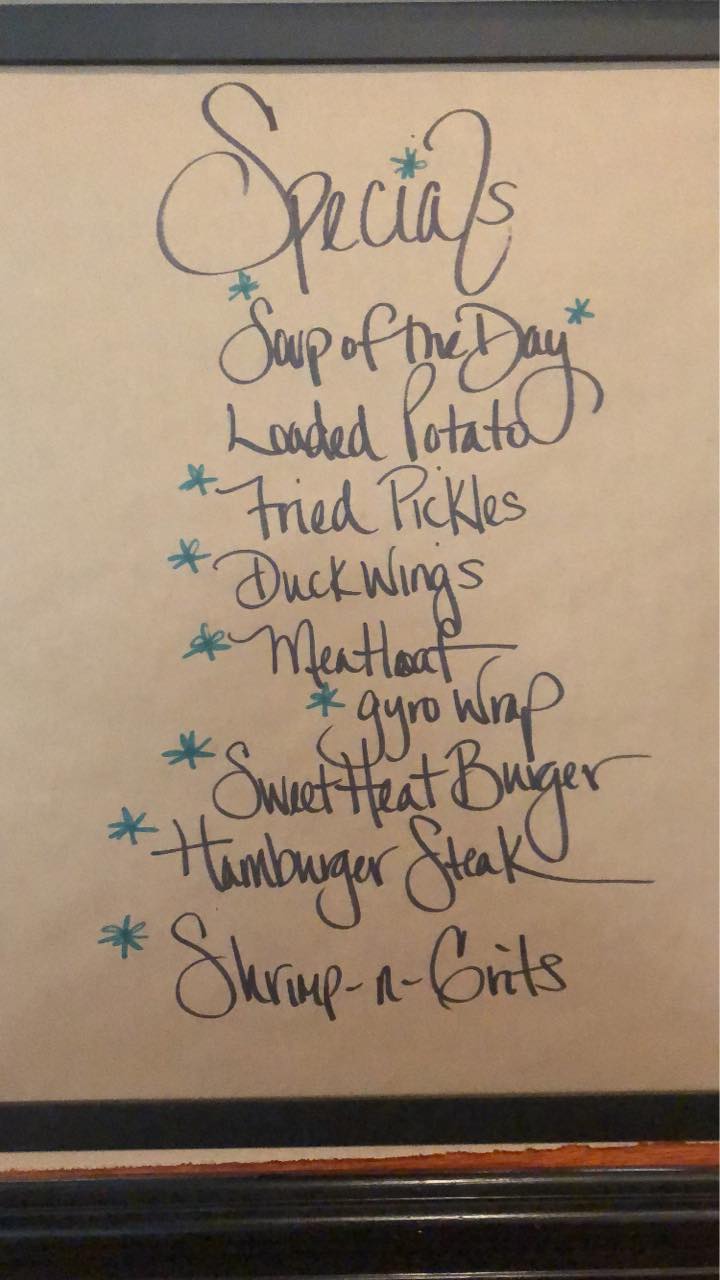 Specials
Soup of the Day
Loaded Potato
Fried Pickles
Duck Wings
Meatloaf
gyro Wrap
Sweet Heat Burger
Hamburger Steak
Shrimp-n-Grits